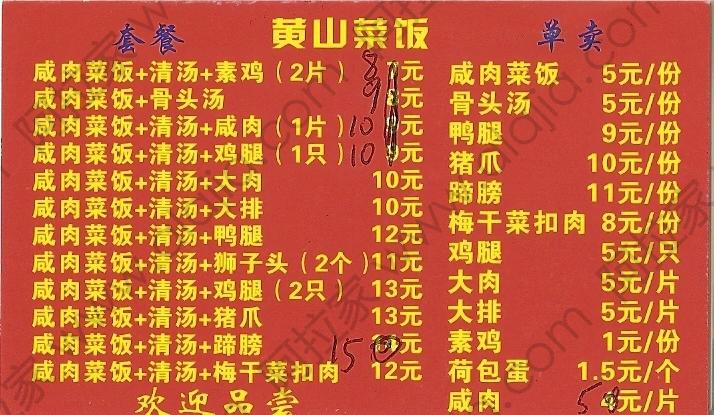 黄山菜饭
套餐
咸肉菜饭+清汤+素鸡（2片）8元
咸肉菜饭+骨头汤 9元
咸肉菜饭+清汤+咸肉（1片）10元
咸肉菜饭+清汤+鸡腿（1只）10元
咸肉菜饭+清汤+大肉 10元
咸肉菜饭+清汤+大排 10元
咸肉菜饭+清汤+鸭腿 12元
咸肉菜饭+清汤+狮子头（2个）11元
咸肉菜饭+清汤+鸡腿（2只）13元
咸肉菜饭+清汤+猪爪 13元
咸肉菜饭+清汤+蹄膀 15元
咸肉菜饭+清汤+梅干菜扣肉 12元
欢迎品尝
单卖
咸肉菜饭 5元/份
骨头汤 5元/份
鸭腿 9元/份
猪爪 10元/份
蹄膀 11元/份
梅干菜扣肉 8元/份
鸡腿 5元/只
大肉 5元/片
大排 5元/片
素鸡 1元/份
荷包蛋 1.5元/个
咸肉 5元/片
阿拉家 www.alajia.com